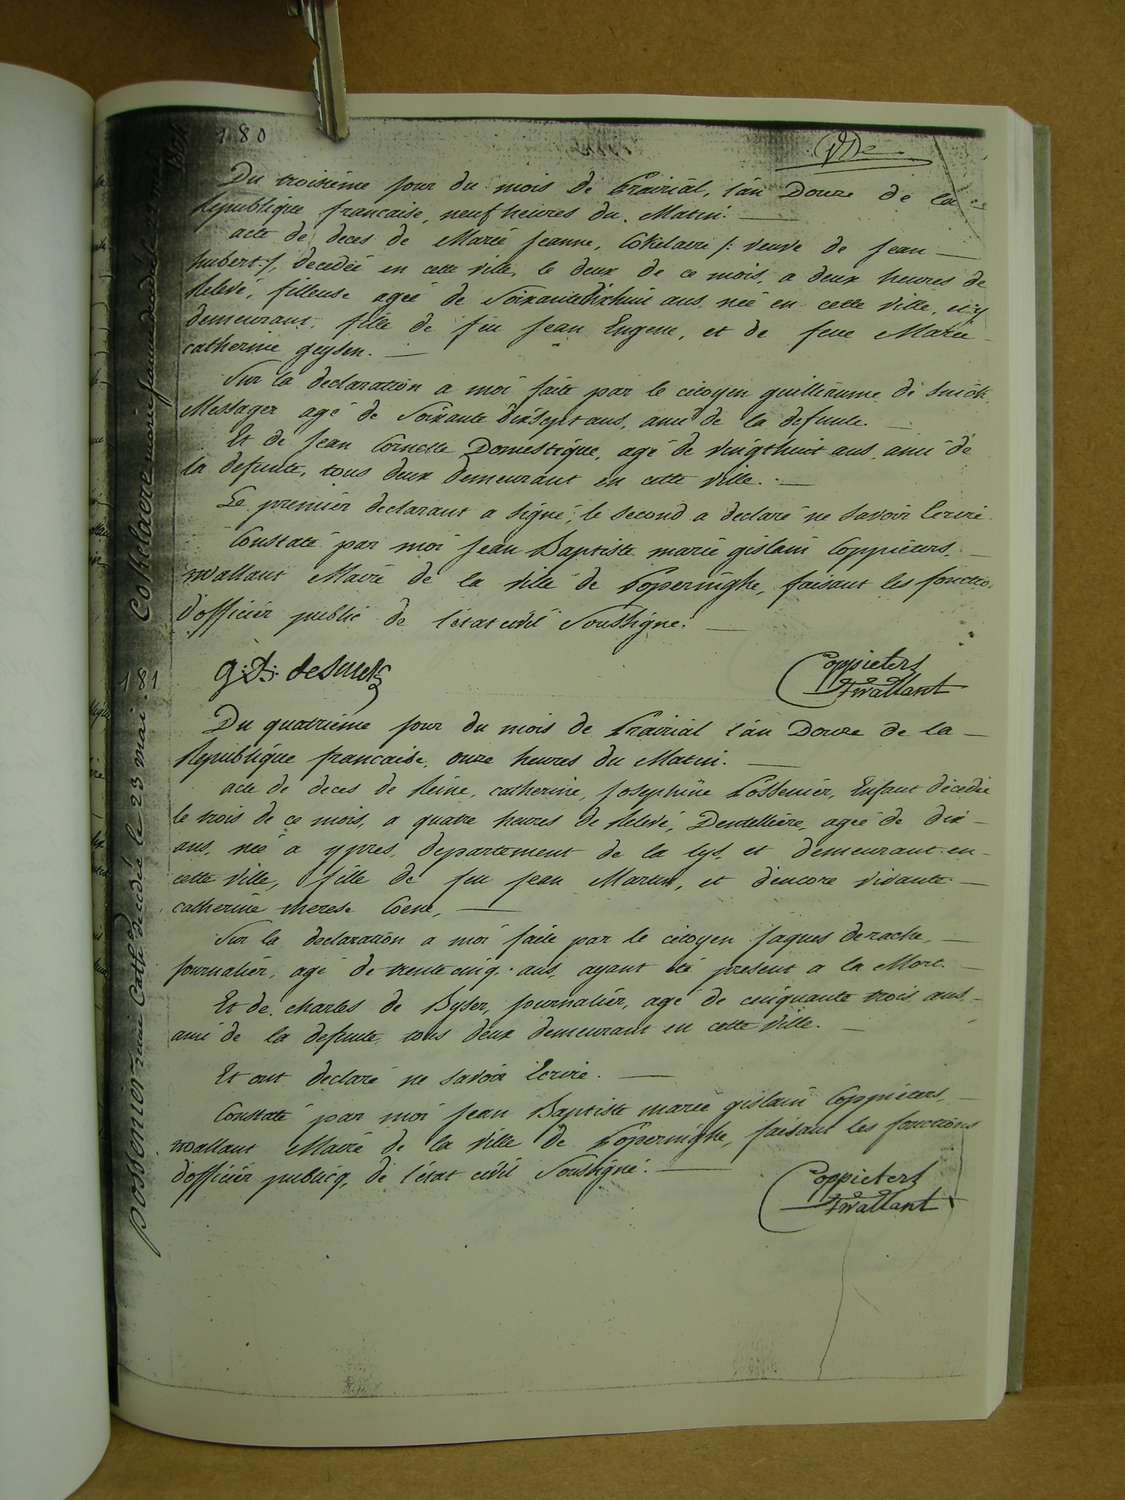 180
Du troisième jour du mois de Prairial, l'an Douze de la
Republique francaise, neuf heures du Matin.
acte de deces de Marie Jeanne, Cokelaere /: veuve de Jean
hubert:/, decedeé en cette ville, le deux de ce mois, a deux heures de
Relevé, fileuse ageé de Soixante dix huit ans, neé en cette ville, et y
demeurant, fille de feu Jean Eugene, et de feue Marie
catherine geysen.
Sur la declaration a moi faite par le citoyen guilliaume de
Messager agé de Soixante dix Sept ans, ami de la defunte.
Et de Jean Cornette Domestique, agé de vingthuit ans, ami de
la defunte, tous deux demeurant en cette ville.
Le premier declarant a signé, le second a declaré ne savoir Ecrire
Constaté par moi Jean Baptiste marie gislain Coppieters,
wallant Maire de la ville de Poperinghe, faisant les fonctio
d'officier public de l'état civil Soussigné.
g: D: desmet
Coppieters
twallant
181
Du quatrieme jour du mois de Prairial l'an Douze de la
Republique francaise, onze heures du Matin.
acte de deces de Reine, catherine, Josephine Possenier, Enfant décedée
le trois de ce mois, a quatre heures de Relevé, Dentellière, ageé de dix
ans, neé a ypres, departement de la Lys, et demeurant en
cette ville, fille de feu Jean Martin, et d'encore vivante
catherine therese Coene,
Sur la declaration a moi faite par le citoyen Jaques derache,
journalier, agé de trente cinq ans, ayant été present a la Mort.
Et de charles de Byser, journalier, agé de cinquante trois ans,
ami de la defunte, tous deux demeurant en cette ville.
Et ont declaré ne savoir Ecrire.
Constaté par moi Jean Baptiste marie gislain Coppieters,
wallant Maire de la ville de Poperinghe, faisant les fonctions
d'officier publicq, de l'état civil Soussigné.
Coppieters
twallant
Cokelaere marie jeanne
possenier reine Cathe decedé le 23 mai